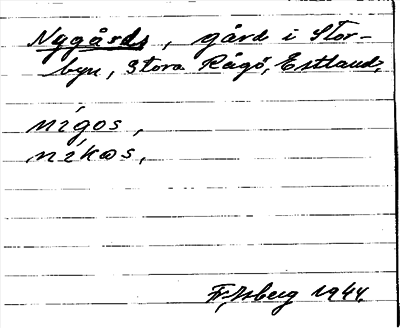 Nygårds, gård i Stor-
byn, Stora Rågö, Estland,
nīgos,
níkas,
1944.